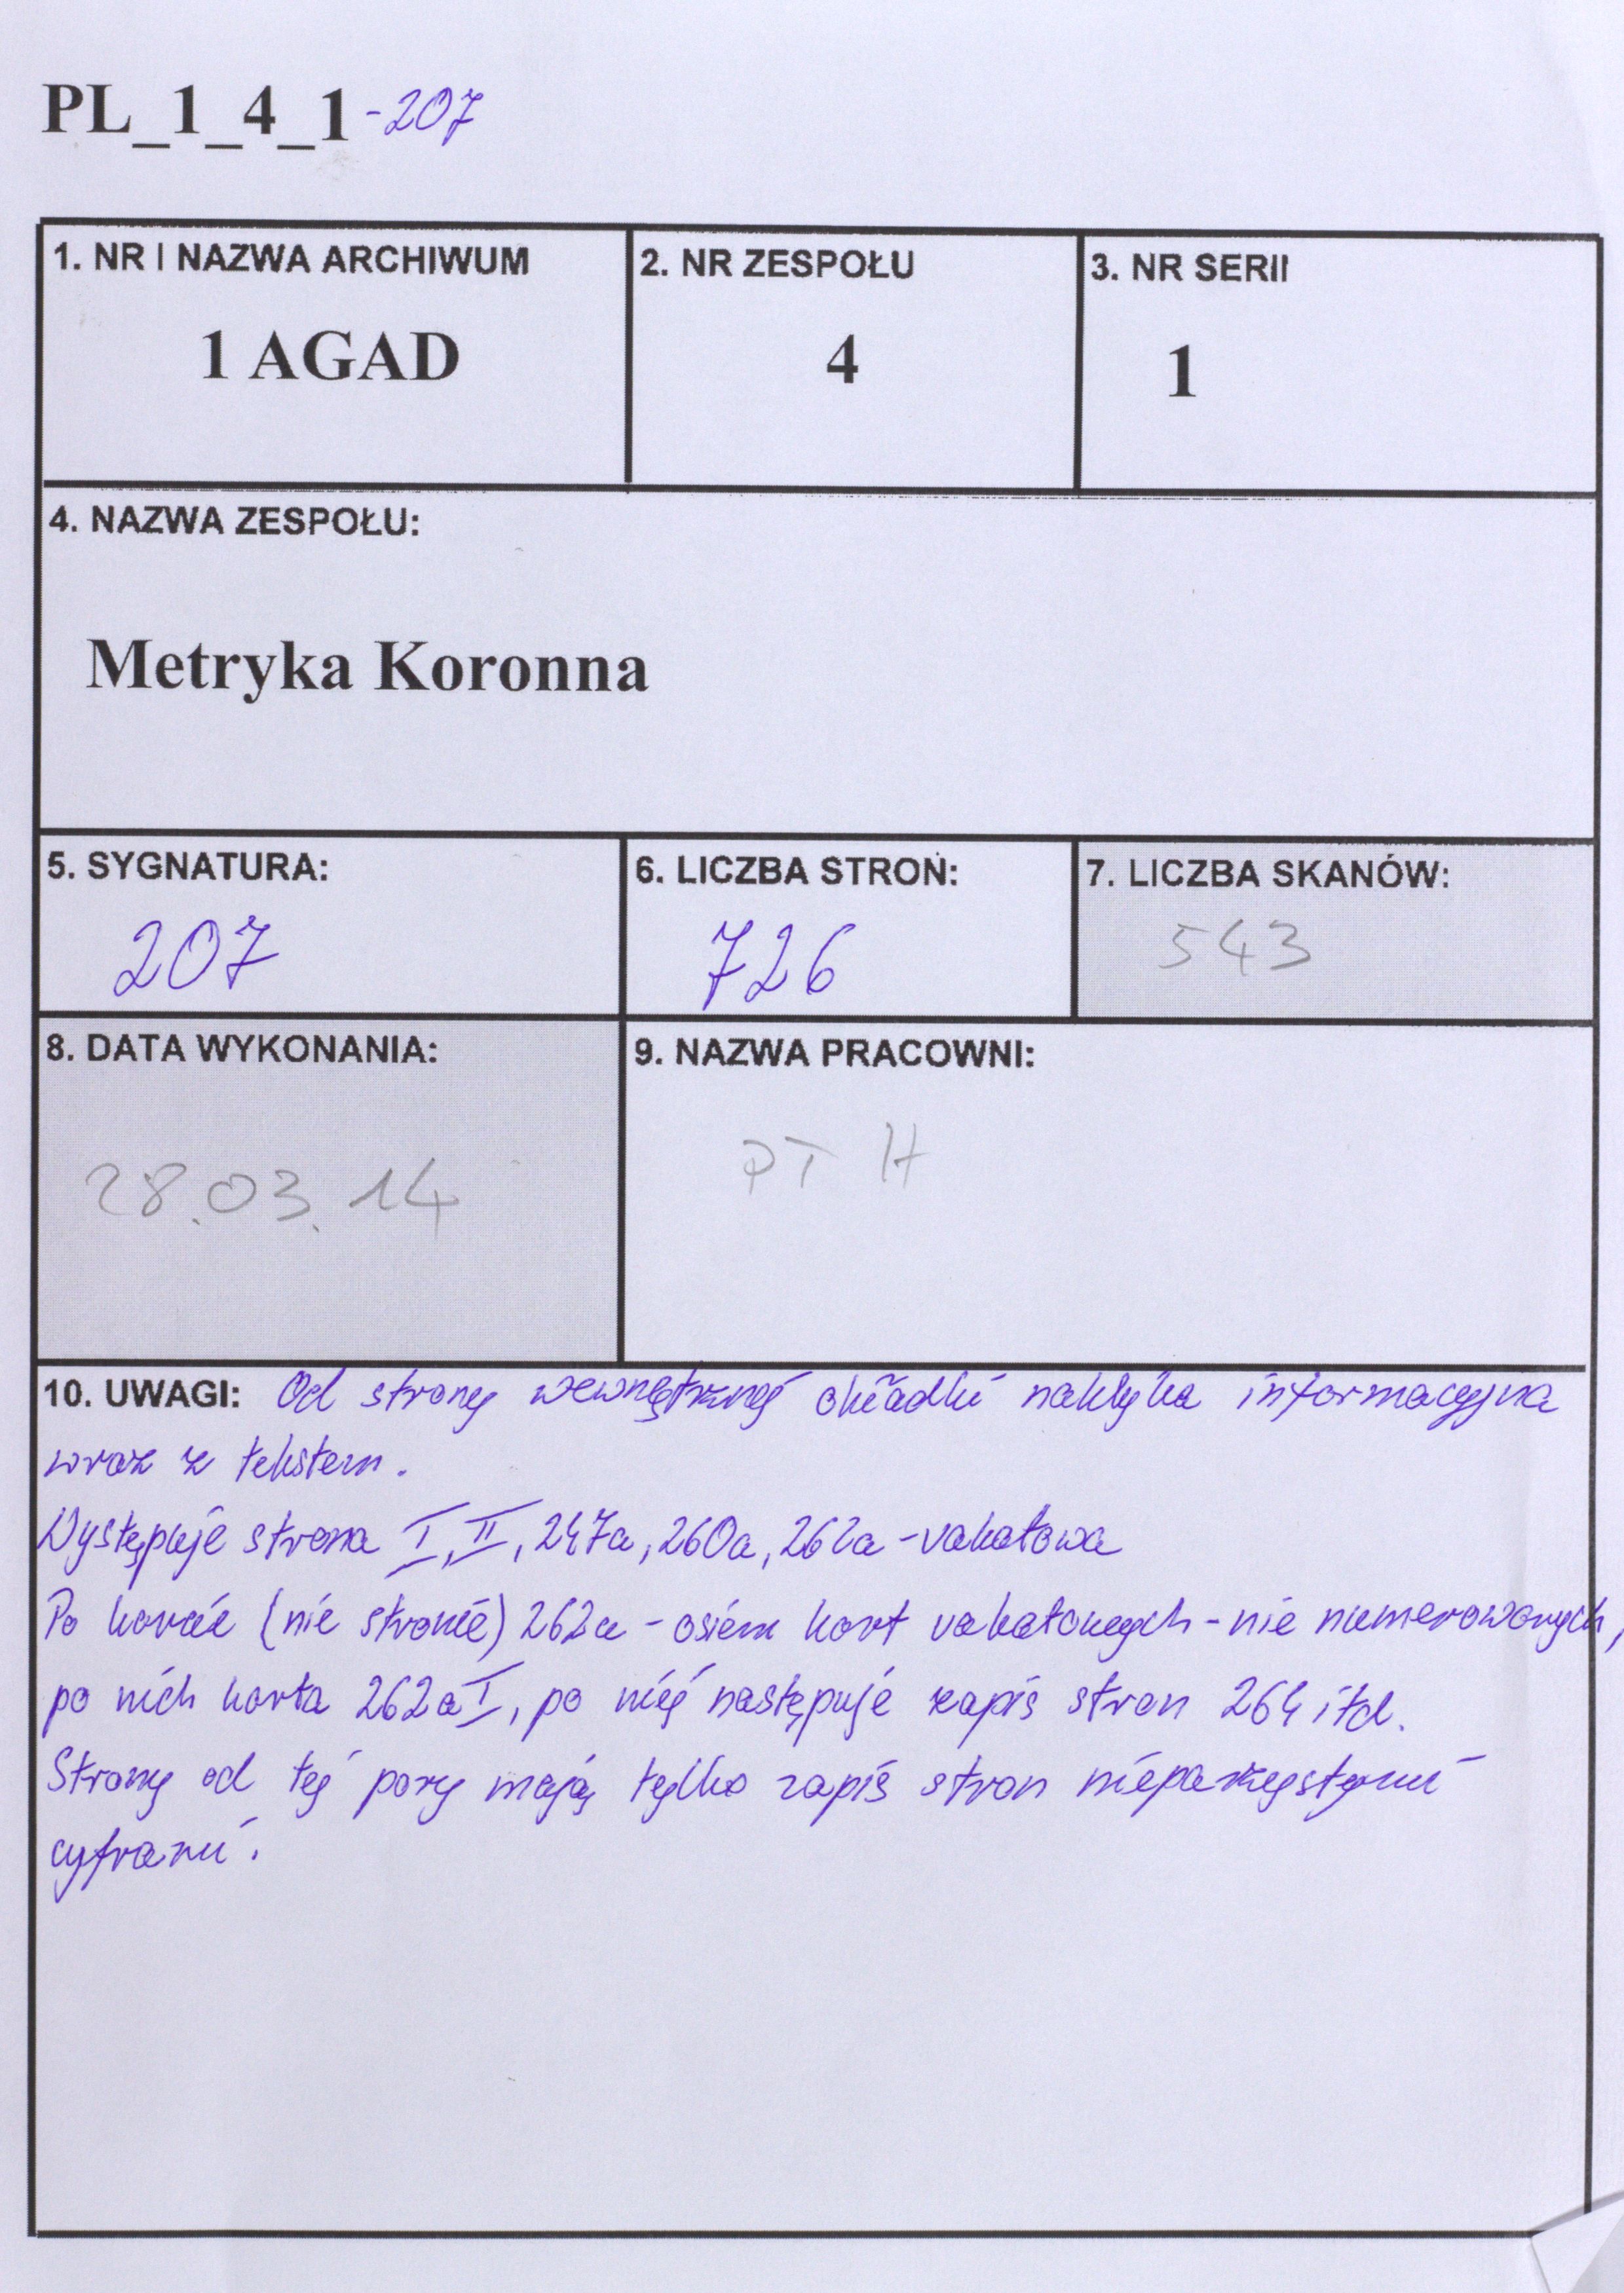 PL_1_4_1-207
1. NR I NAZWA ARCHIWUM
1 AGAD
2. NR ZESPOŁU
4
3. NR SERII
1
4. NAZWA ZESPOŁU:
Metryka Koronna
5. SYGNATURA:
207
6. LICZBA STRON:
726
7. LICZBA SKANÓW:
543
8. DATA WYKONANIA:
28.03.14
9. NAZWA PRACOWNI:
PT H
10. UWAGI: Od strony wewnętrznej okładki naklejka informacyjna
wraz z tekstem.
Występuje strona I, II, 247a, 260a, 262a - vakatowa
Po karcie (nie stronie) 262a - osiem kart vakatowych - nie numerowanych,
po nich karta 262aI, po niej następuje zapis stron 264 itd.
Strony od tej pory mają tylko zapis stron nieparzystymi
cyframi.